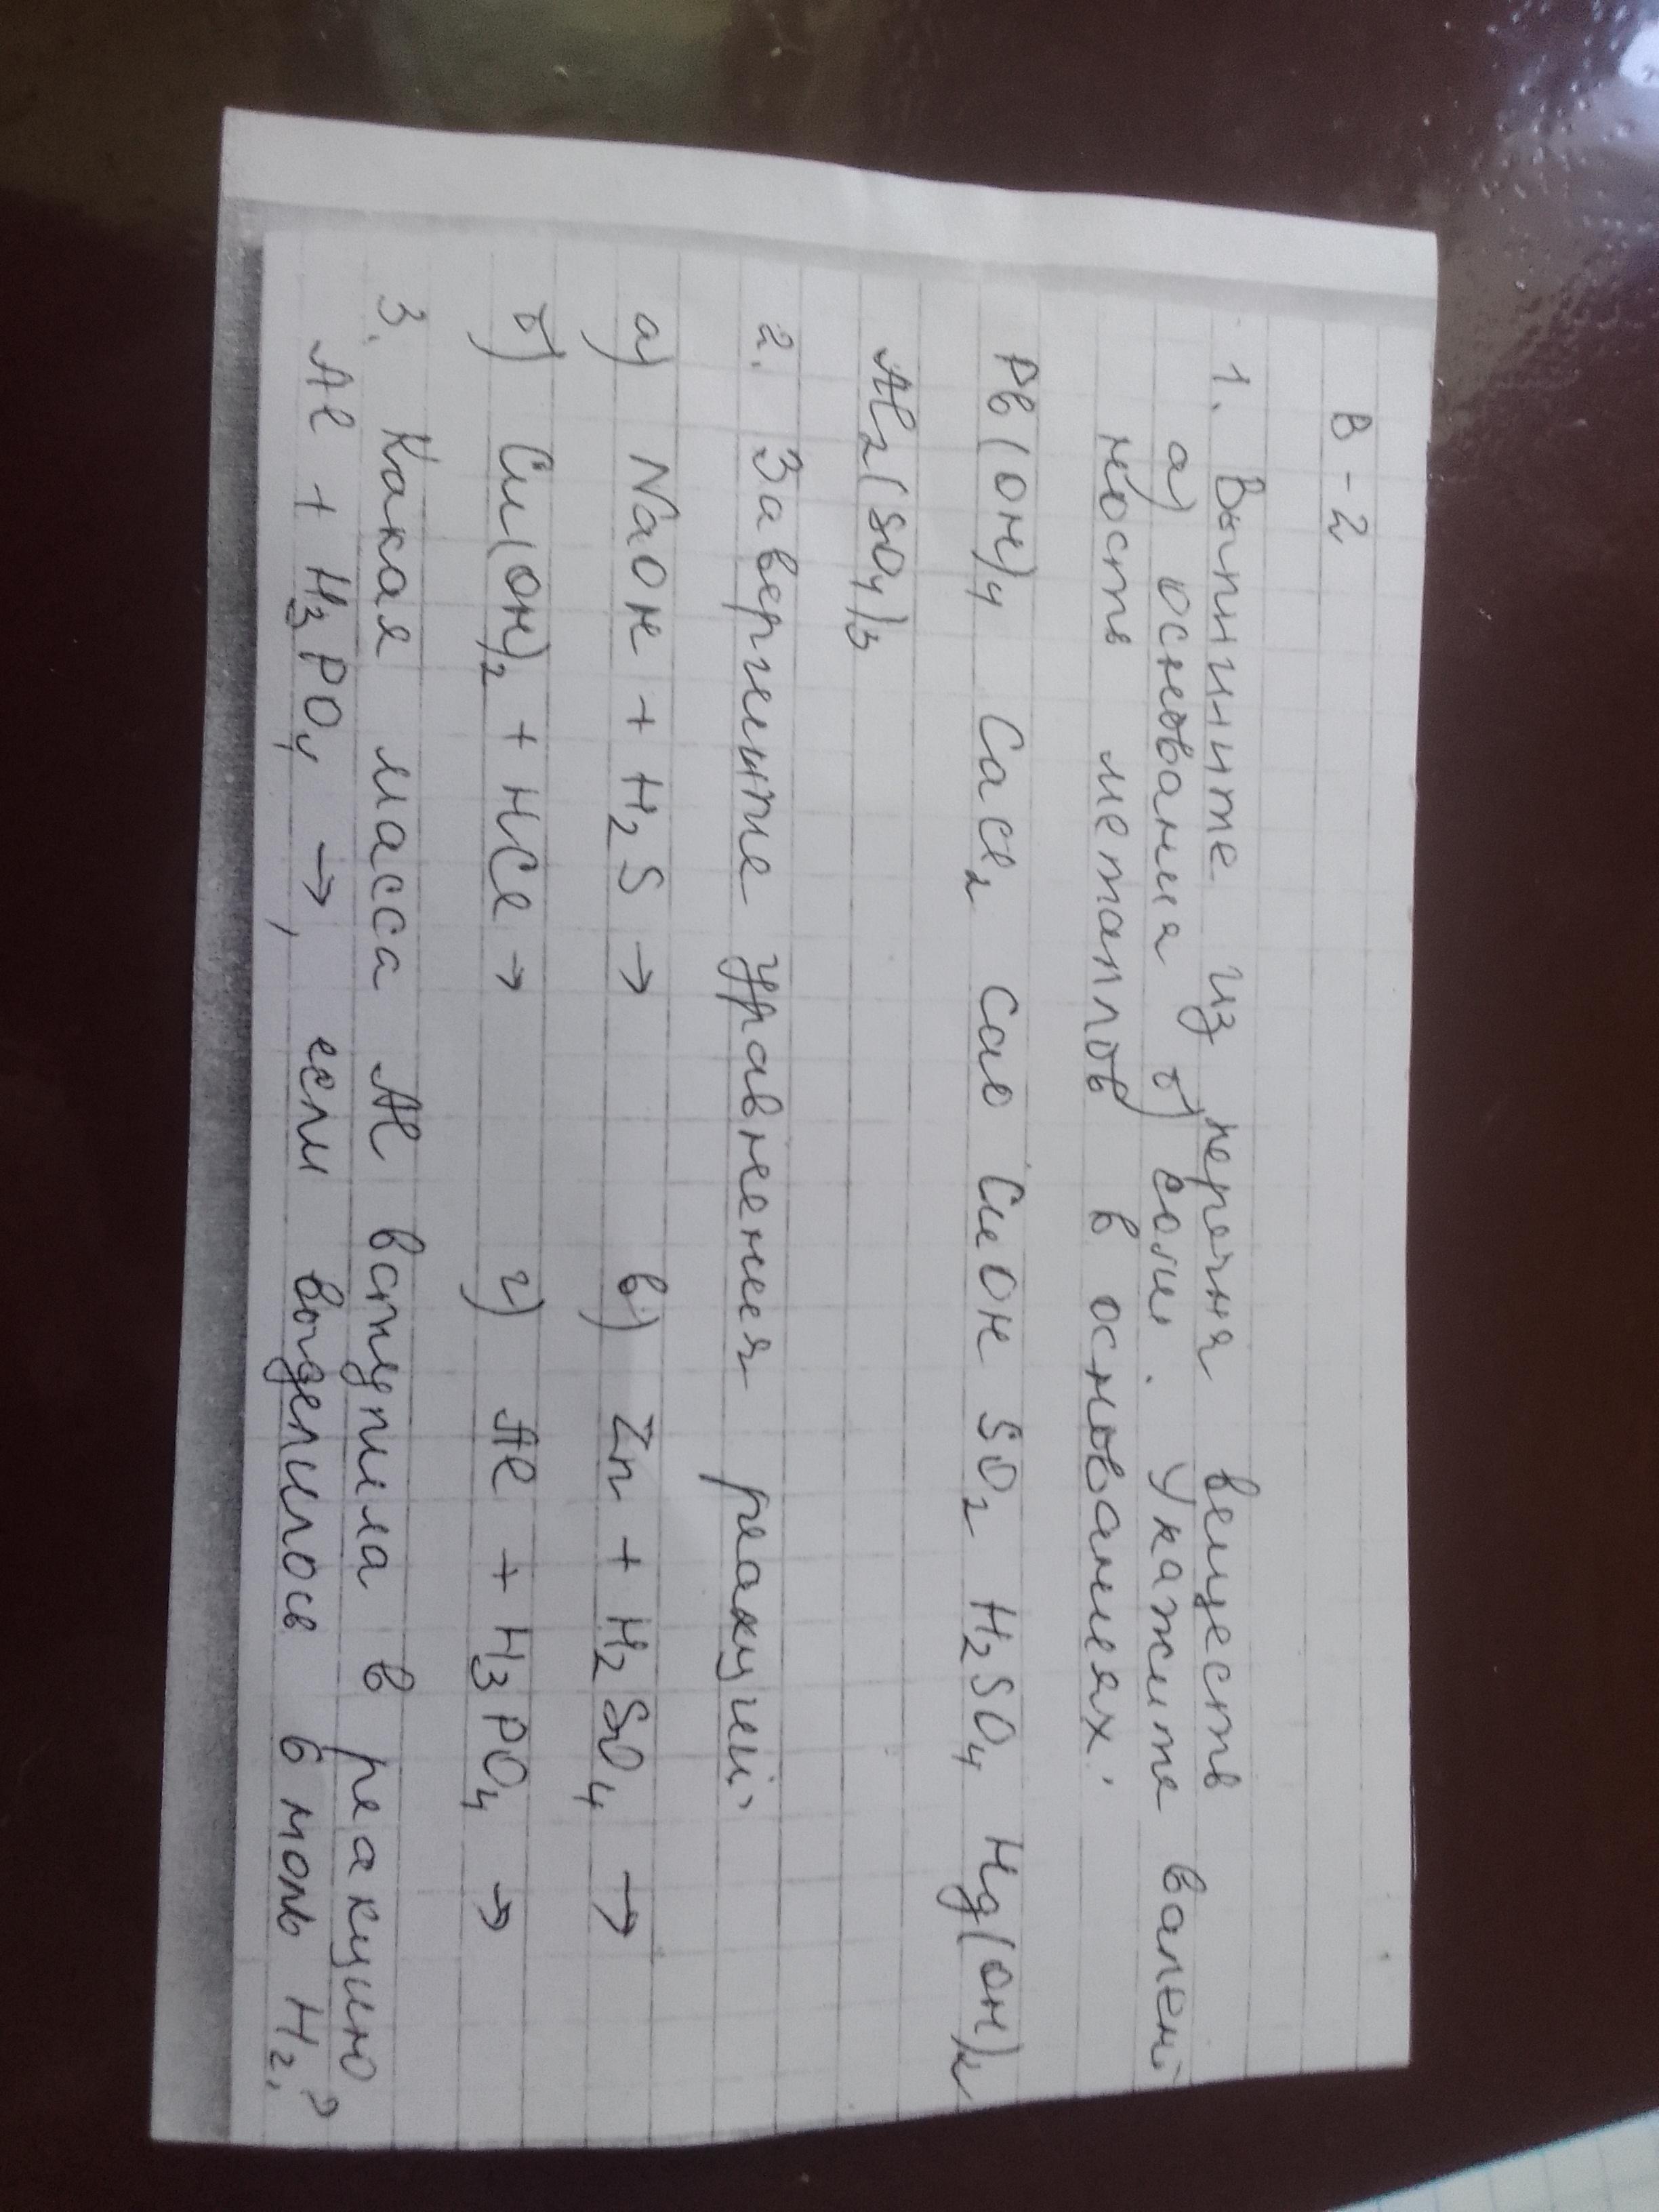 В-2
1. Выпишите из перечня веществ
а) основания б) соли. Укажите валент
ность металлов в основаниях.
Pb(OH)4 CaCl2 CaO CuOH SO2 H2SO4 Hg(OH)2
Al2(SO4)3
2. Завершите уравнения реакций:
а) NaOH + H2S → в) Zn + H2SO4 →
б) Cu(OH)2 + HCl → г) Al + H3PO4 →
3. Какая масса Al вступила в реакцию?
Al + H3PO4 →, если выделилось 6 моль H2.